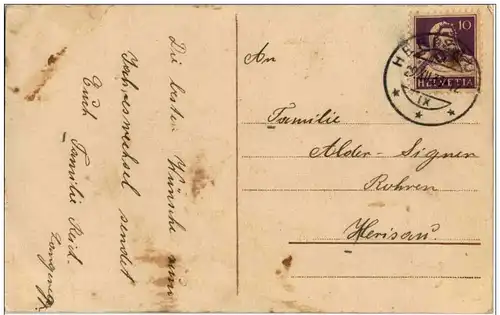 Die besten Wünsche zum
Jahreswechsel sendet
Euch Familie Reich
Langenegg
An
Familie
Alder-Signer
Rohren
Herisau.
10
HELVETIA
HERISAU